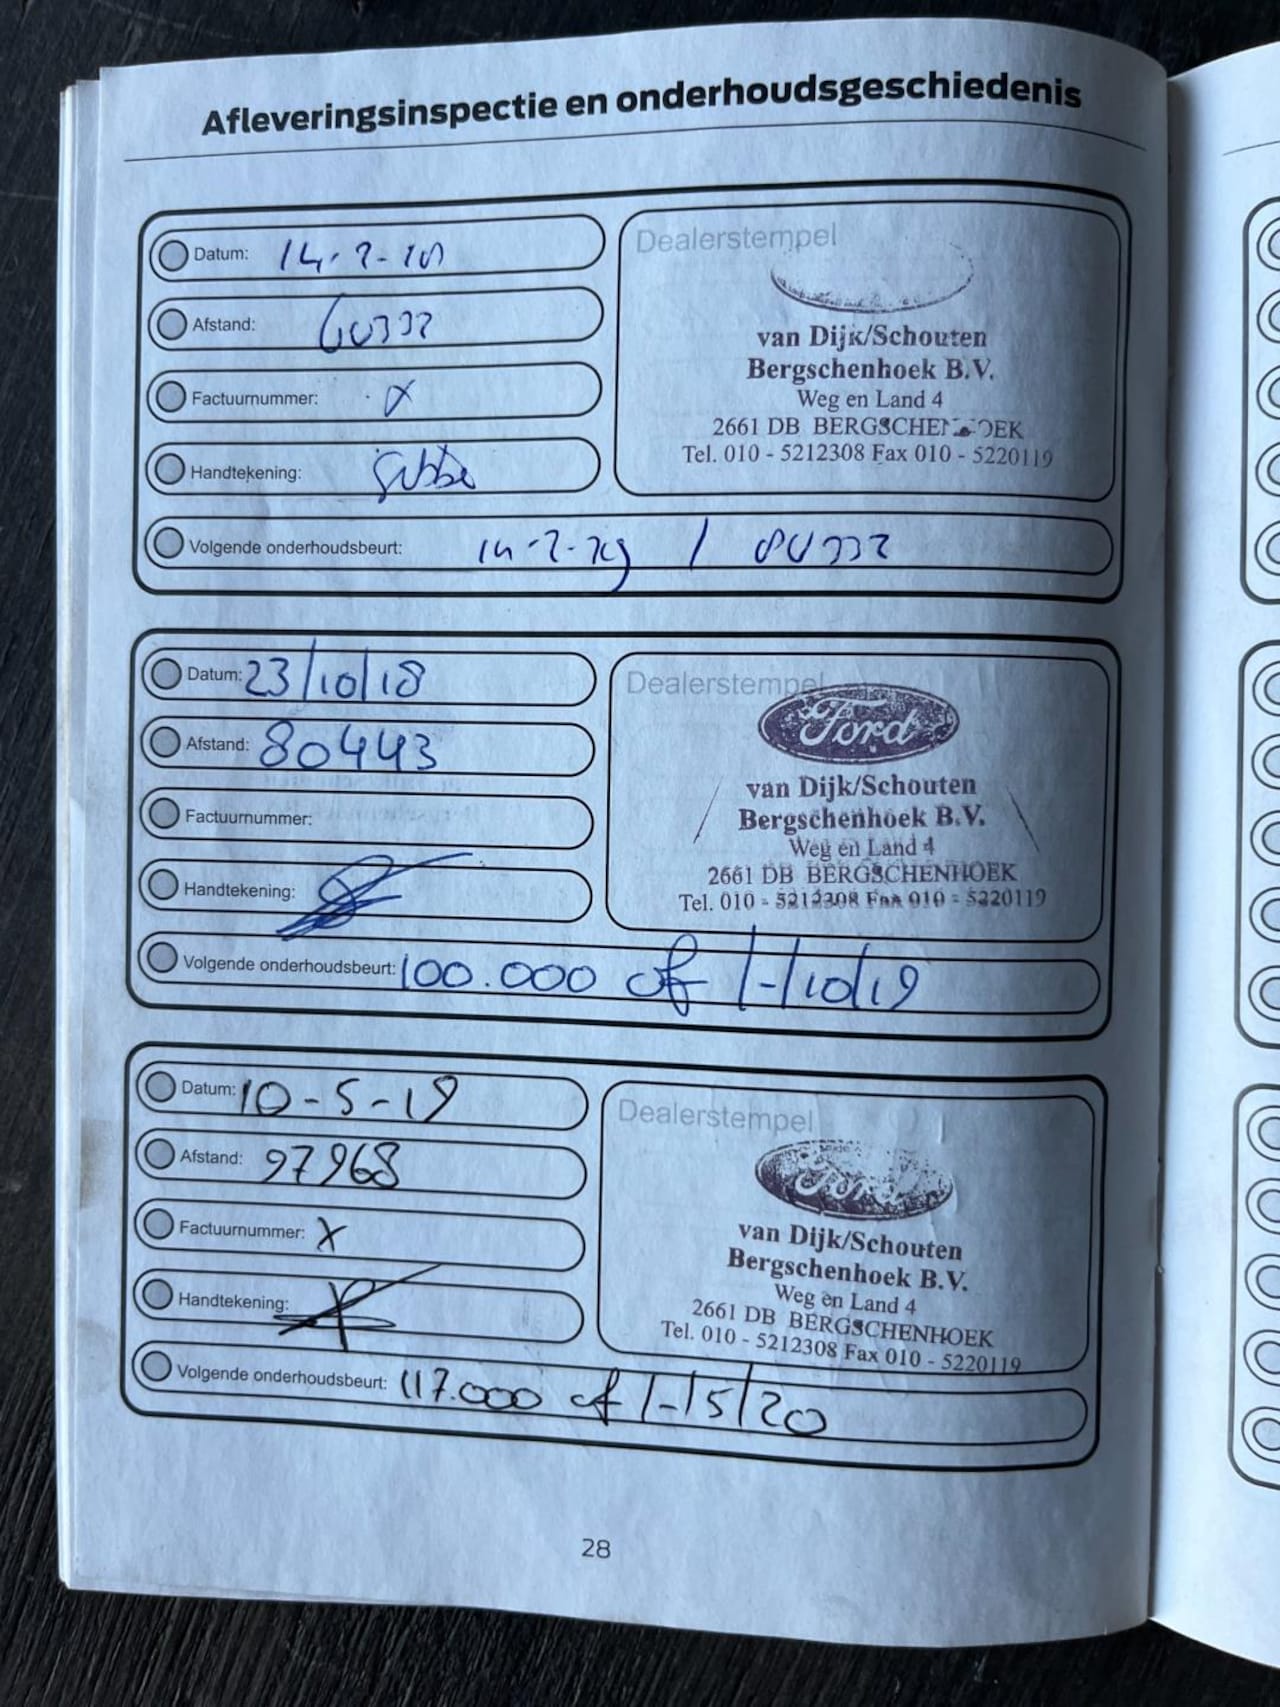 Afleveringsinspectie en onderhoudsgeschiedenis
Datum: 14-2-18
Afstand: 60332
Factuurnummer: x
Handtekening:
Volgende onderhoudsbeurt: 14-2-19 / 80332
Dealerstempel
van Dijk/Schouten
Bergschenhoek B.V.
Weg en Land 4
2661 DB BERGSCHENHOEK
Tel. 010 - 5212308 Fax 010 - 5220119
Datum: 23/10/18
Afstand: 80443
Factuurnummer:
Handtekening:
Volgende onderhoudsbeurt: 100.000 of /-/10/19
Dealerstempel
Ford
van Dijk/Schouten
Bergschenhoek B.V.
Weg en Land 4
2661 DB BERGSCHENHOEK
Tel. 010 - 5212308 Fax 010 - 5220119
Datum: 10-5-19
Afstand: 97968
Factuurnummer: x
Handtekening:
Volgende onderhoudsbeurt: 117.000 of /-/5/20
Dealerstempel
Ford
van Dijk/Schouten
Bergschenhoek B.V.
Weg en Land 4
2661 DB BERGSCHENHOEK
Tel. 010 - 5212308 Fax 010 - 5220119
28